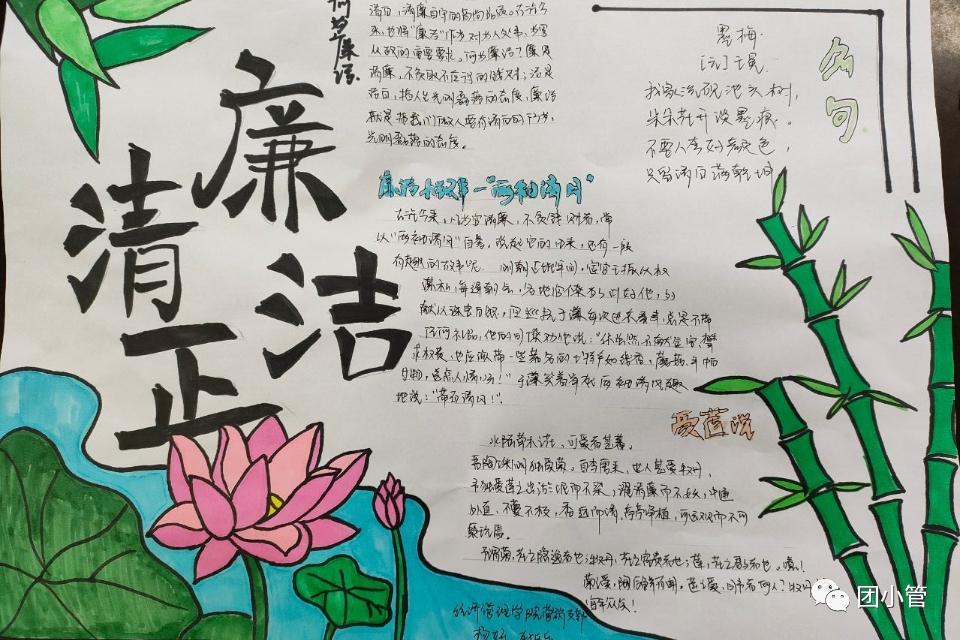 何为廉洁
从政的重要要求。何为廉洁？廉及
清廉，不贪取不应得的钱财；洁及
洁白，指人生光明磊落的态度，廉洁
就是指我们做人要有清白的行为，
光明磊落的态度。
廉
洁
清
正
名句
墨梅
[元]王冕
我家洗砚池头树，
朵朵花开淡墨痕。
不要人夸好颜色，
只留清白满乾坤
廉洁小故事—"两袖清风"
古往今来，人为官清廉，不贪钱财者，常
以"两袖清风"自喜，说起它的由来，还有一段
有趣的故事呢
献以珠宝白银，巡抚于谦每次进京奏事，总是不带
任何礼品，他的同僚劝他说："你虽然不献金宝攀
求权贵，也应该带一些著名的土特产如线香，蘑菇，手帕
等物，送点人情呀！"于谦笑着举起两袖清风趣
地说："带有清风！"
爱莲说
水陆草木之花，可爱者甚蕃。
晋陶渊明独爱菊，自李唐来，世人甚爱牡丹，
予独爱莲之出淤泥而不染，濯清涟而不妖，中通
外直，不蔓不枝，香远益清，亭亭净植，可远观而不可
亵玩焉。
予谓菊，花之隐逸者也；牡丹，花之富贵者也；莲，花之君子者也。噫！
菊之爱，陶后鲜有闻，莲之爱，同予者何人？牡丹
宜乎众矣！
团小管